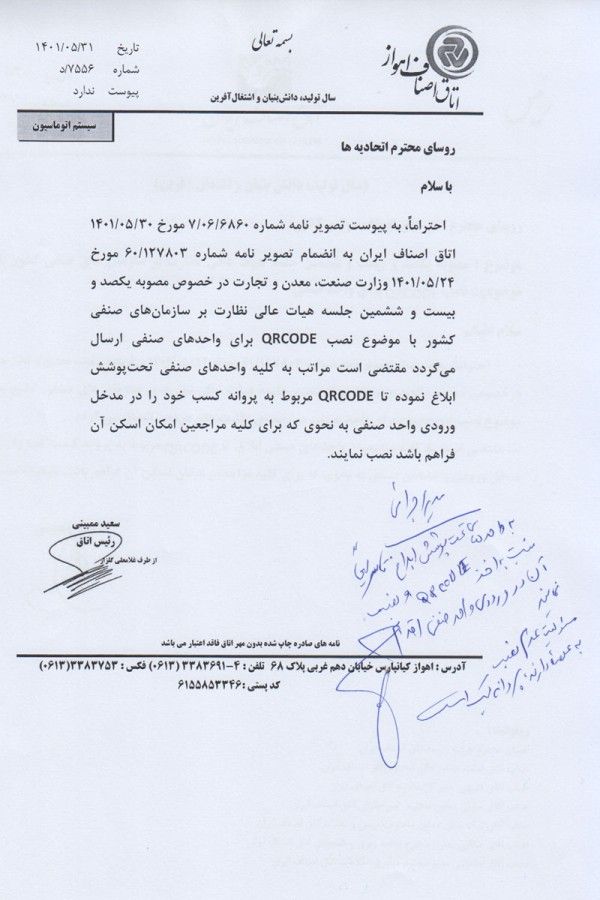 بسمه تعالی
اتاق اصناف اهواز
تاریخ ۱۴۰۱/۰۵/۳۱
شماره ۷۵۵۶/د
پیوست ندارد
سال تولید، دانش‌بنیان و اشتغال‌آفرین
سیستم اتوماسیون
روسای محترم اتحادیه ها
با سلام
احتراماً، به پیوست تصویر نامه شماره ۷/۰۶/۶۸۶۰ مورخ ۱۴۰۱/۰۵/۳۰
اتاق اصناف ایران به انضمام تصویر نامه شماره ۶۰/۱۲۷۸۰۳ مورخ
۱۴۰۱/۰۵/۲۴ وزارت صنعت، معدن و تجارت در خصوص مصوبه یکصد و
بیست و ششمین جلسه هیات عالی نظارت بر سازمان‌های صنفی
کشور با موضوع نصب QRCODE برای واحدهای صنفی ارسال
می‌گردد مقتضی است مراتب به کلیه واحدهای صنفی تحت‌پوشش
ابلاغ نموده تا QRCODE مربوط به پروانه کسب خود را در مدخل
ورودی واحد صنفی به نحوی که برای کلیه مراجعین امکان اسکن آن
فراهم باشد نصب نمایند.
سعید ممبینی
رئیس اتاق
از طرف غلامعلی گلزار
مدیر اجرائی
به واحدهای تحت پوشش ابلاغ تا سریعاً
نسبت به اخذ QRCODE و نصب
آن در ورودی واحد صنفی اقدام
نمایند
مسئولیت عدم نصب
به عهده دارنده پروانه کسب است
نامه های صادره چاپ شده بدون مهر اتاق فاقد اعتبار می باشد
آدرس : اهواز کیانپارس خیابان دهم غربی پلاک ۶۸ تلفن : ۴-۳۳۸۳۶۹۱ (۰۶۱۳) فکس : ۳۳۸۳۷۵۳(۰۶۱۳)
کد پستی : ۶۱۵۵۸۵۳۳۴۶